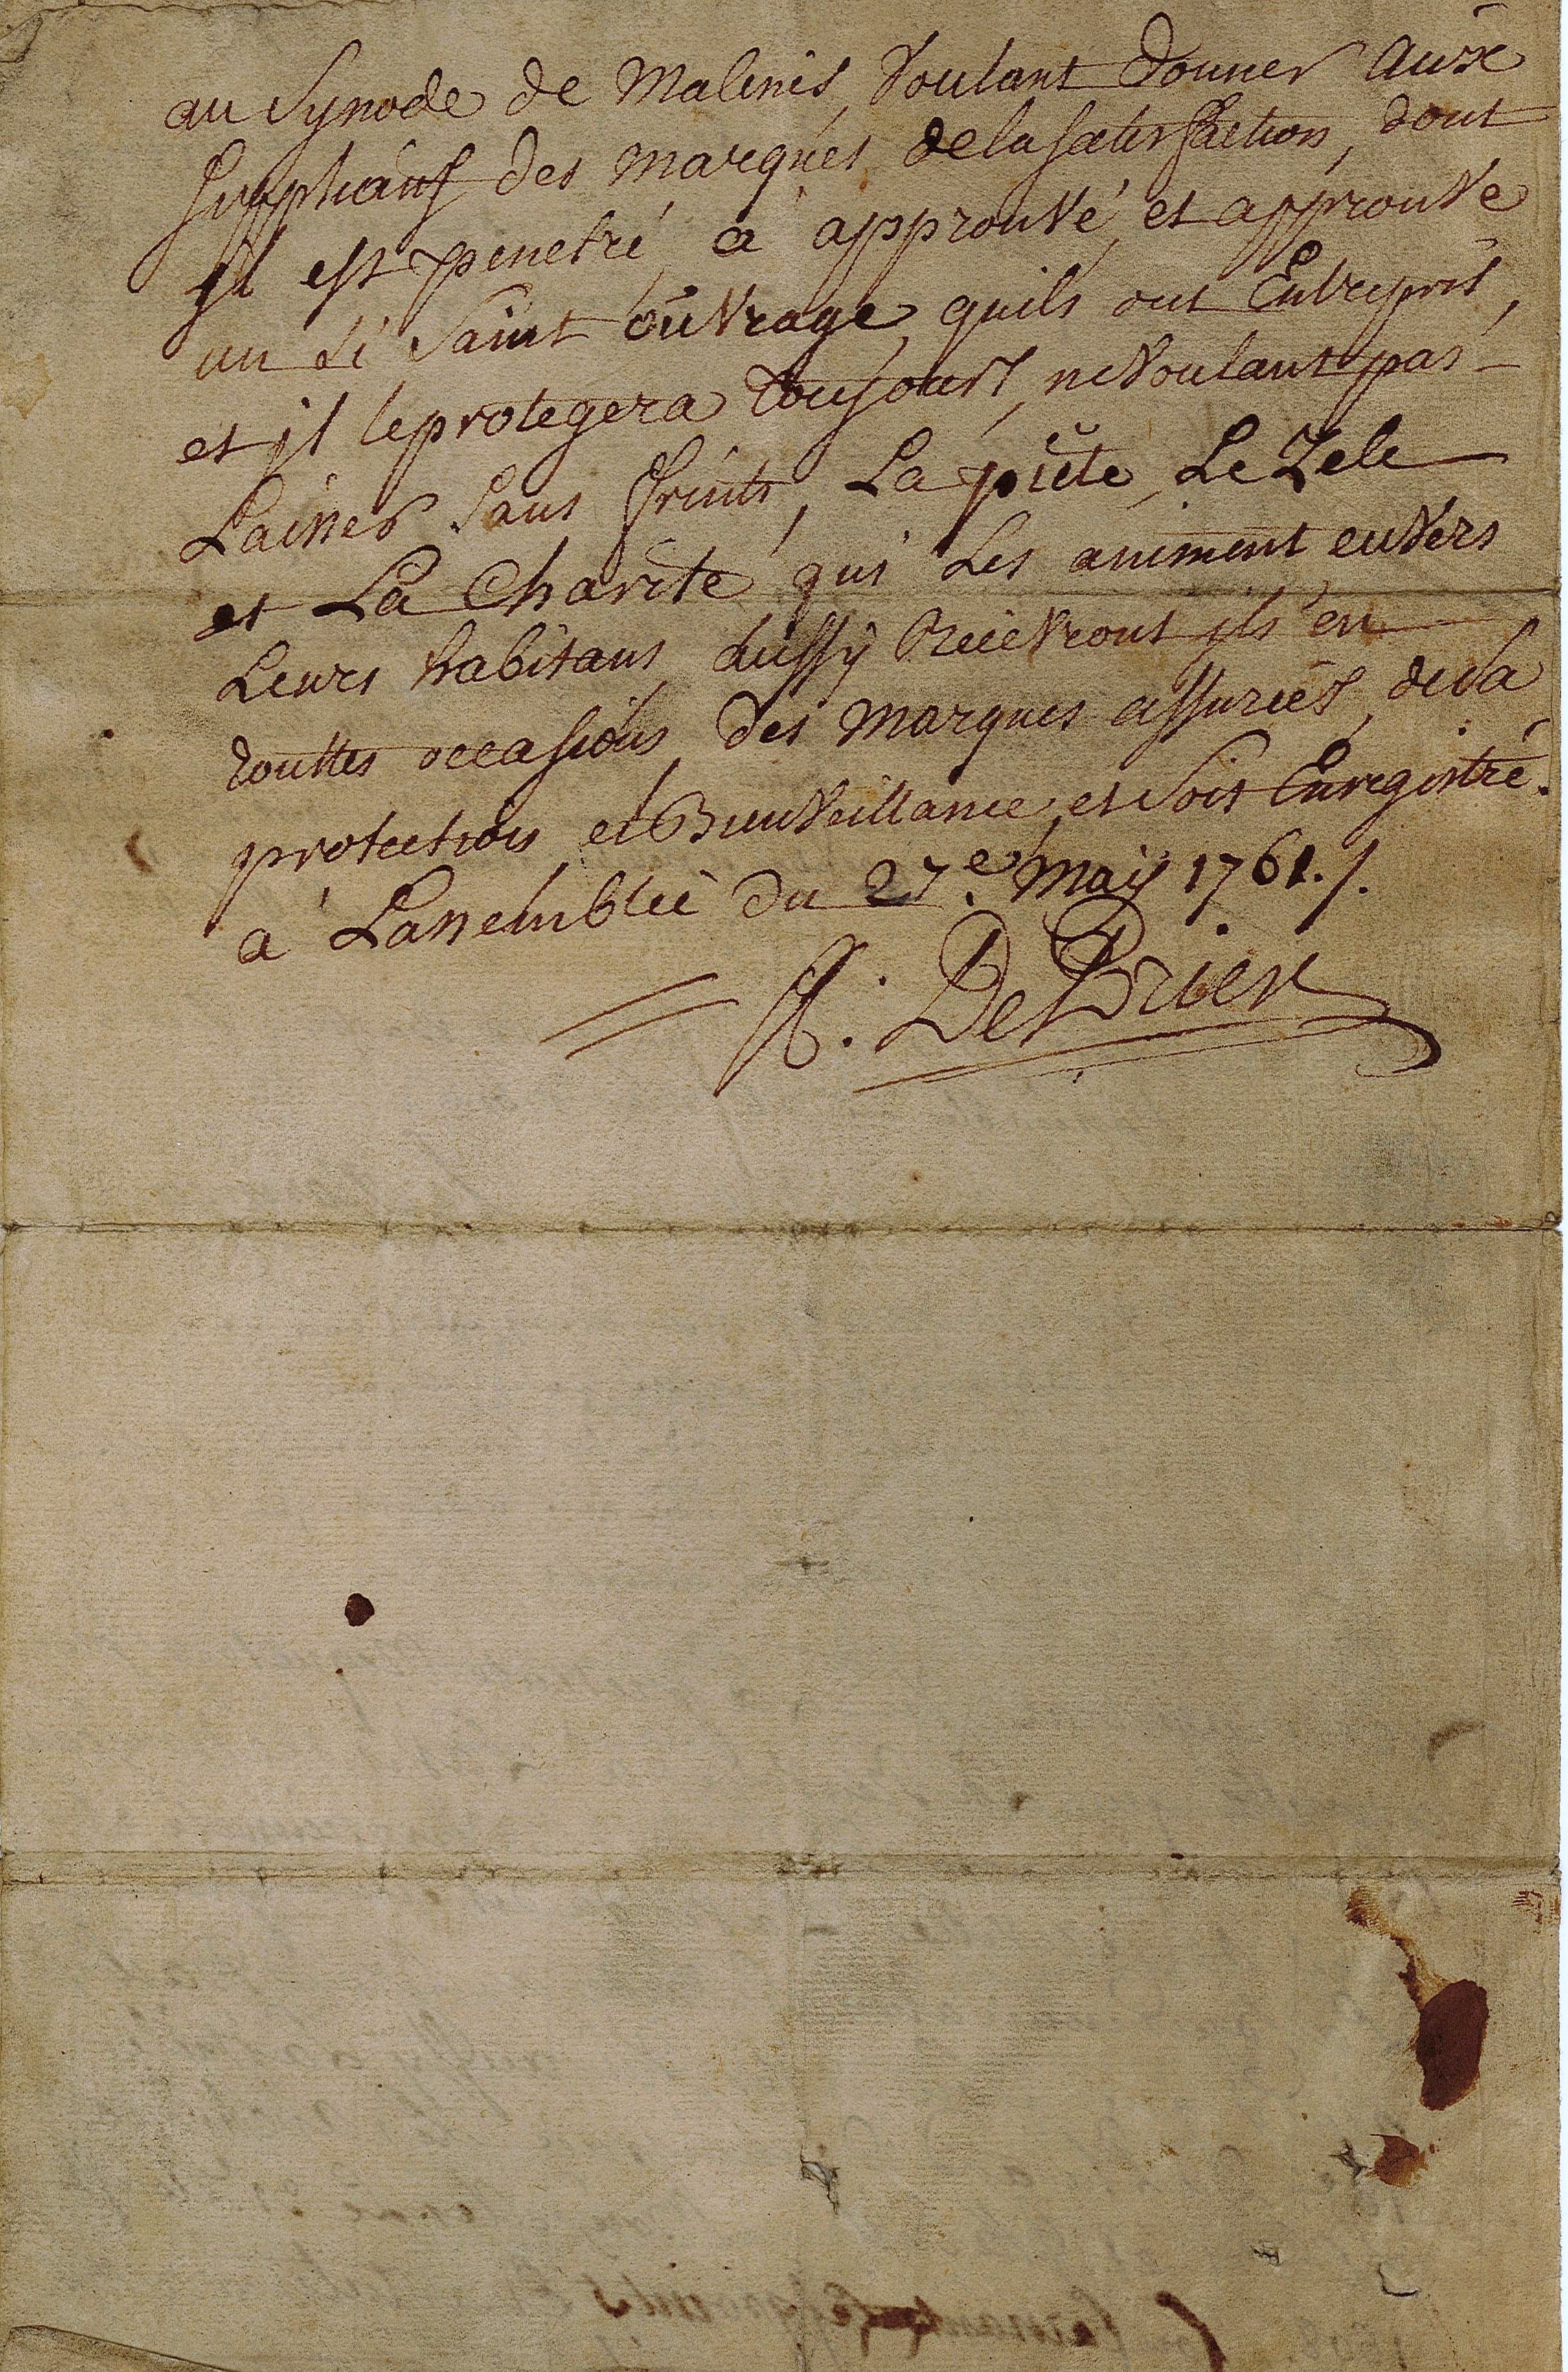 au Synode de Malenis, Voulant Donner Aux
supplians des marques de la satisfaction, dont
jl est penetré a approuvé, et approuve
un si Saint oũvrage, quils ont Entrepris,
et jl leprotegera toujours, nevoulant pas
Laisser sans fruits, La pieté, Le Zele
et La Charité, qui Les animent envers
Leurs habitans, Aussÿ recevront jls en
touttes occasions, des marques assureés, de sa
protection et Bienveillance, et soit Enregistré.
a Lassembleé du 27.e maÿ 1761./.
A. De Brier